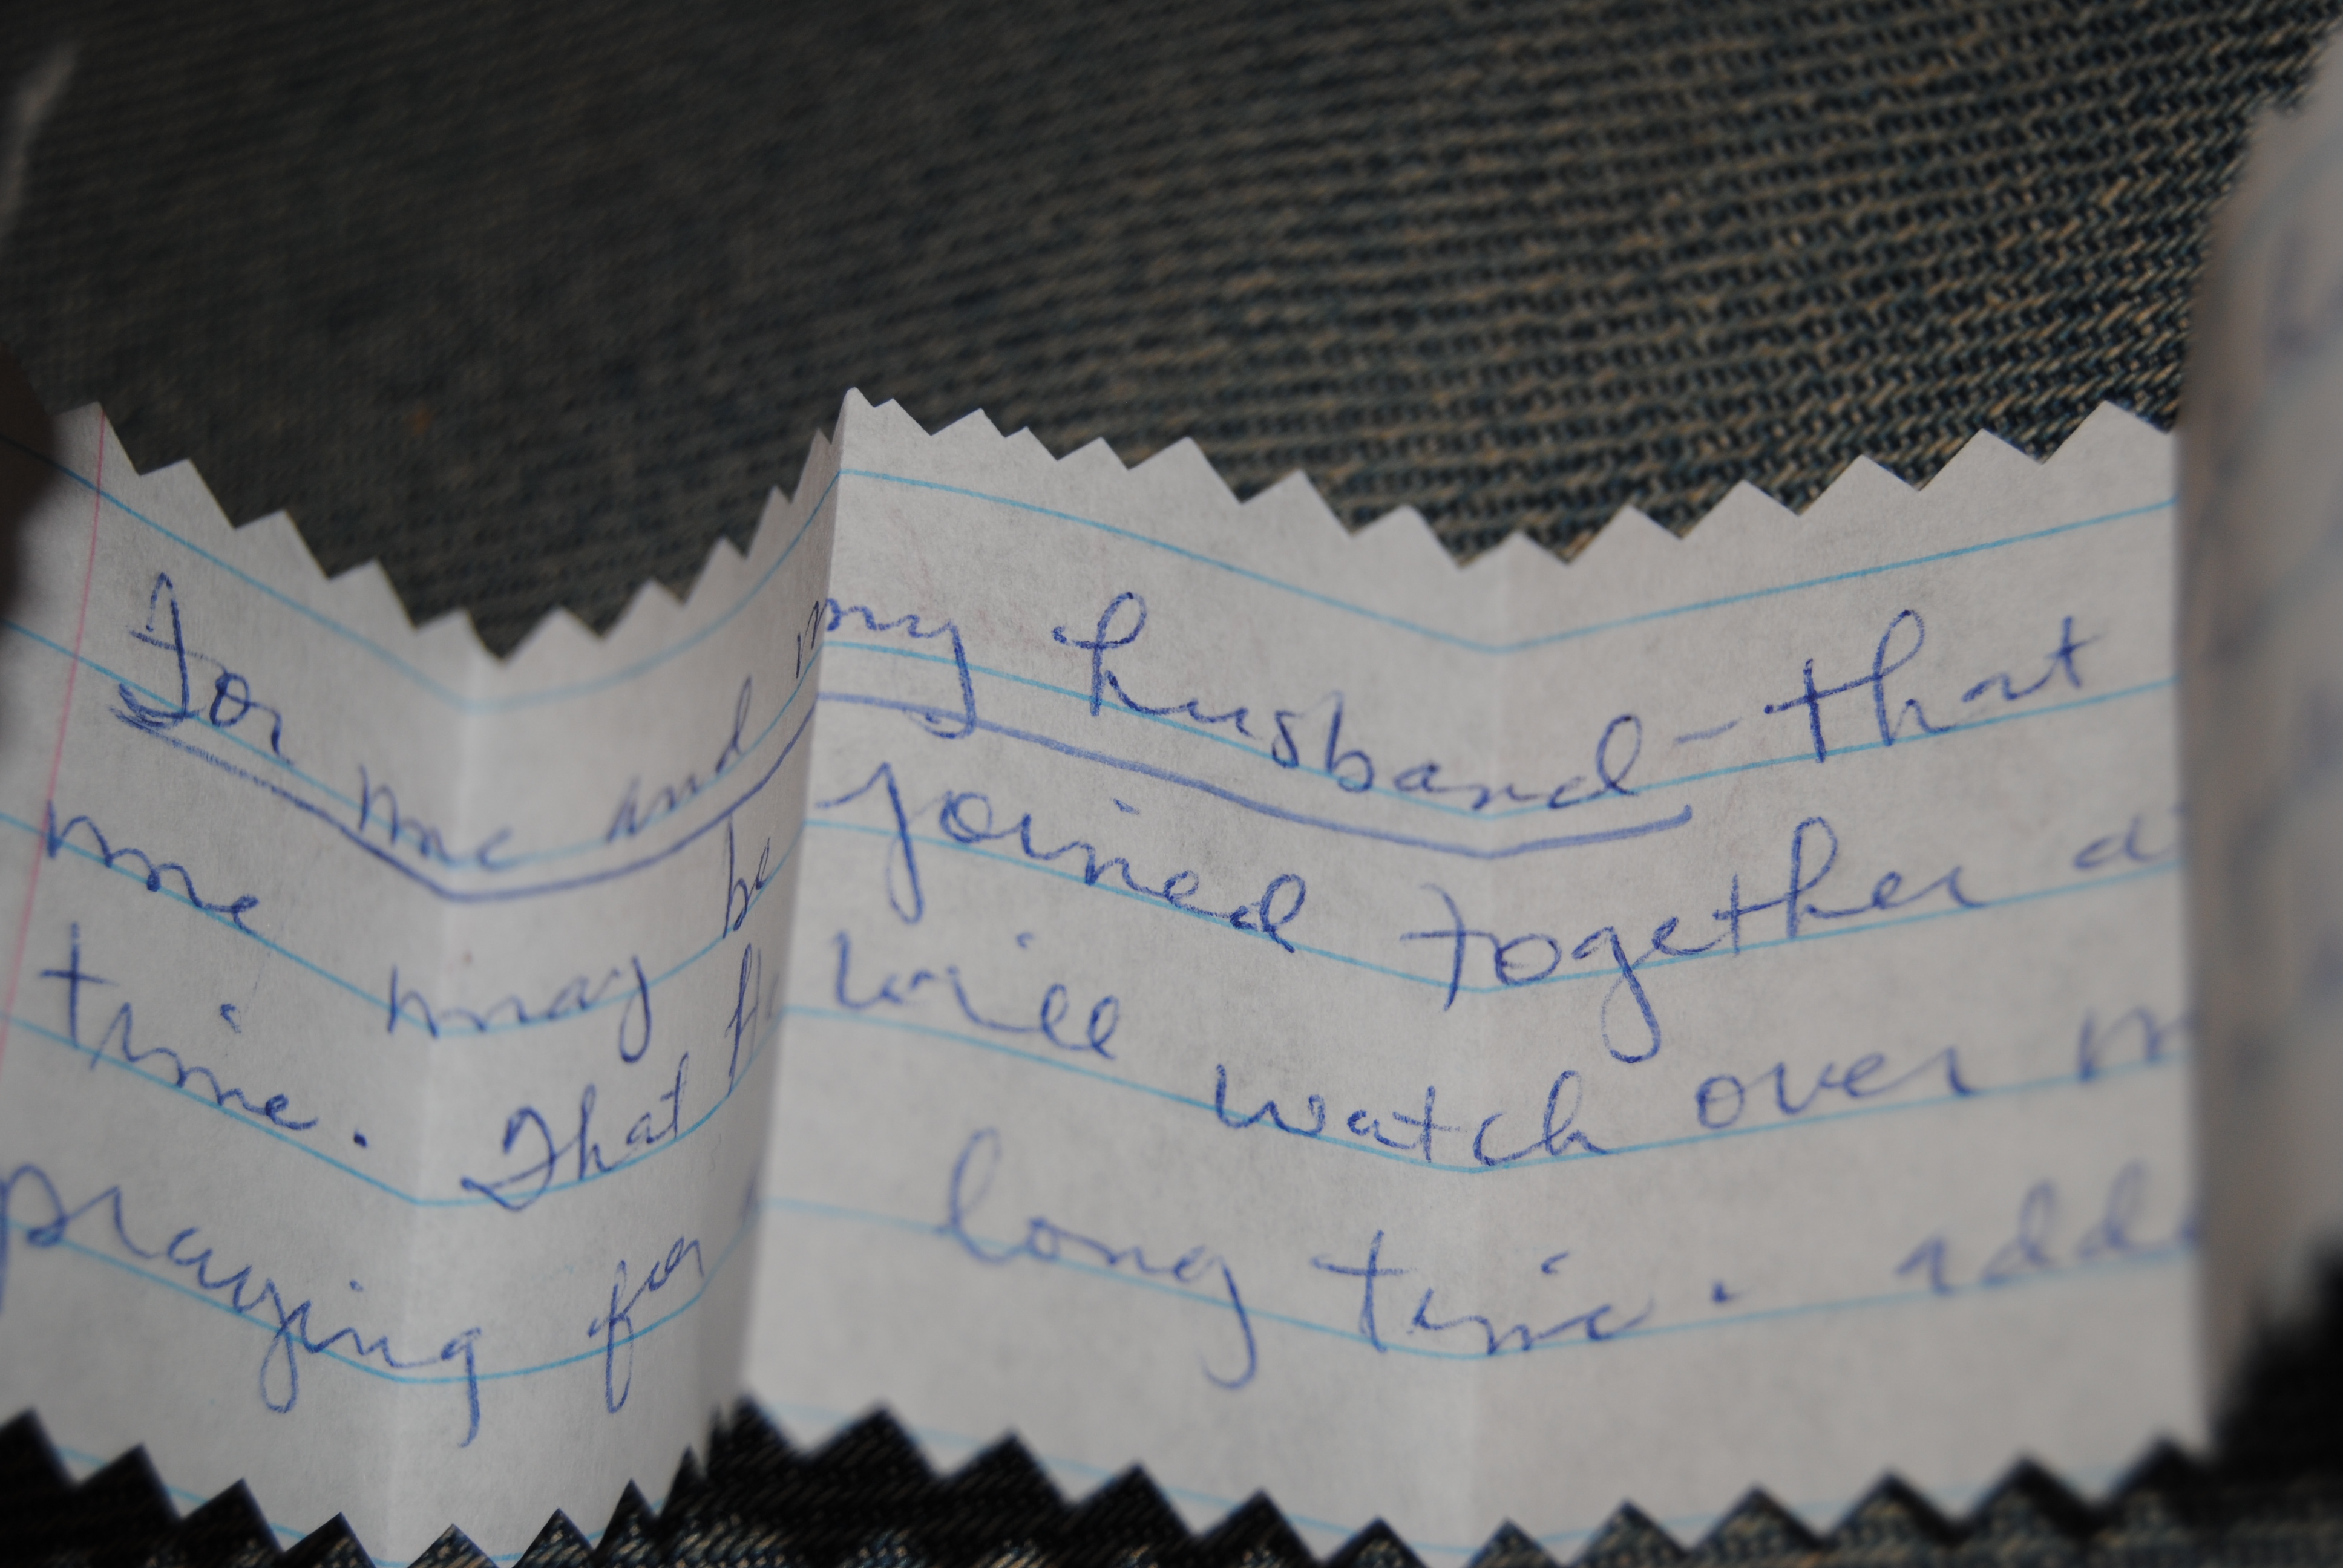 For me and my husband - that
me may be joined together
time. That will watch over
praying for long time.